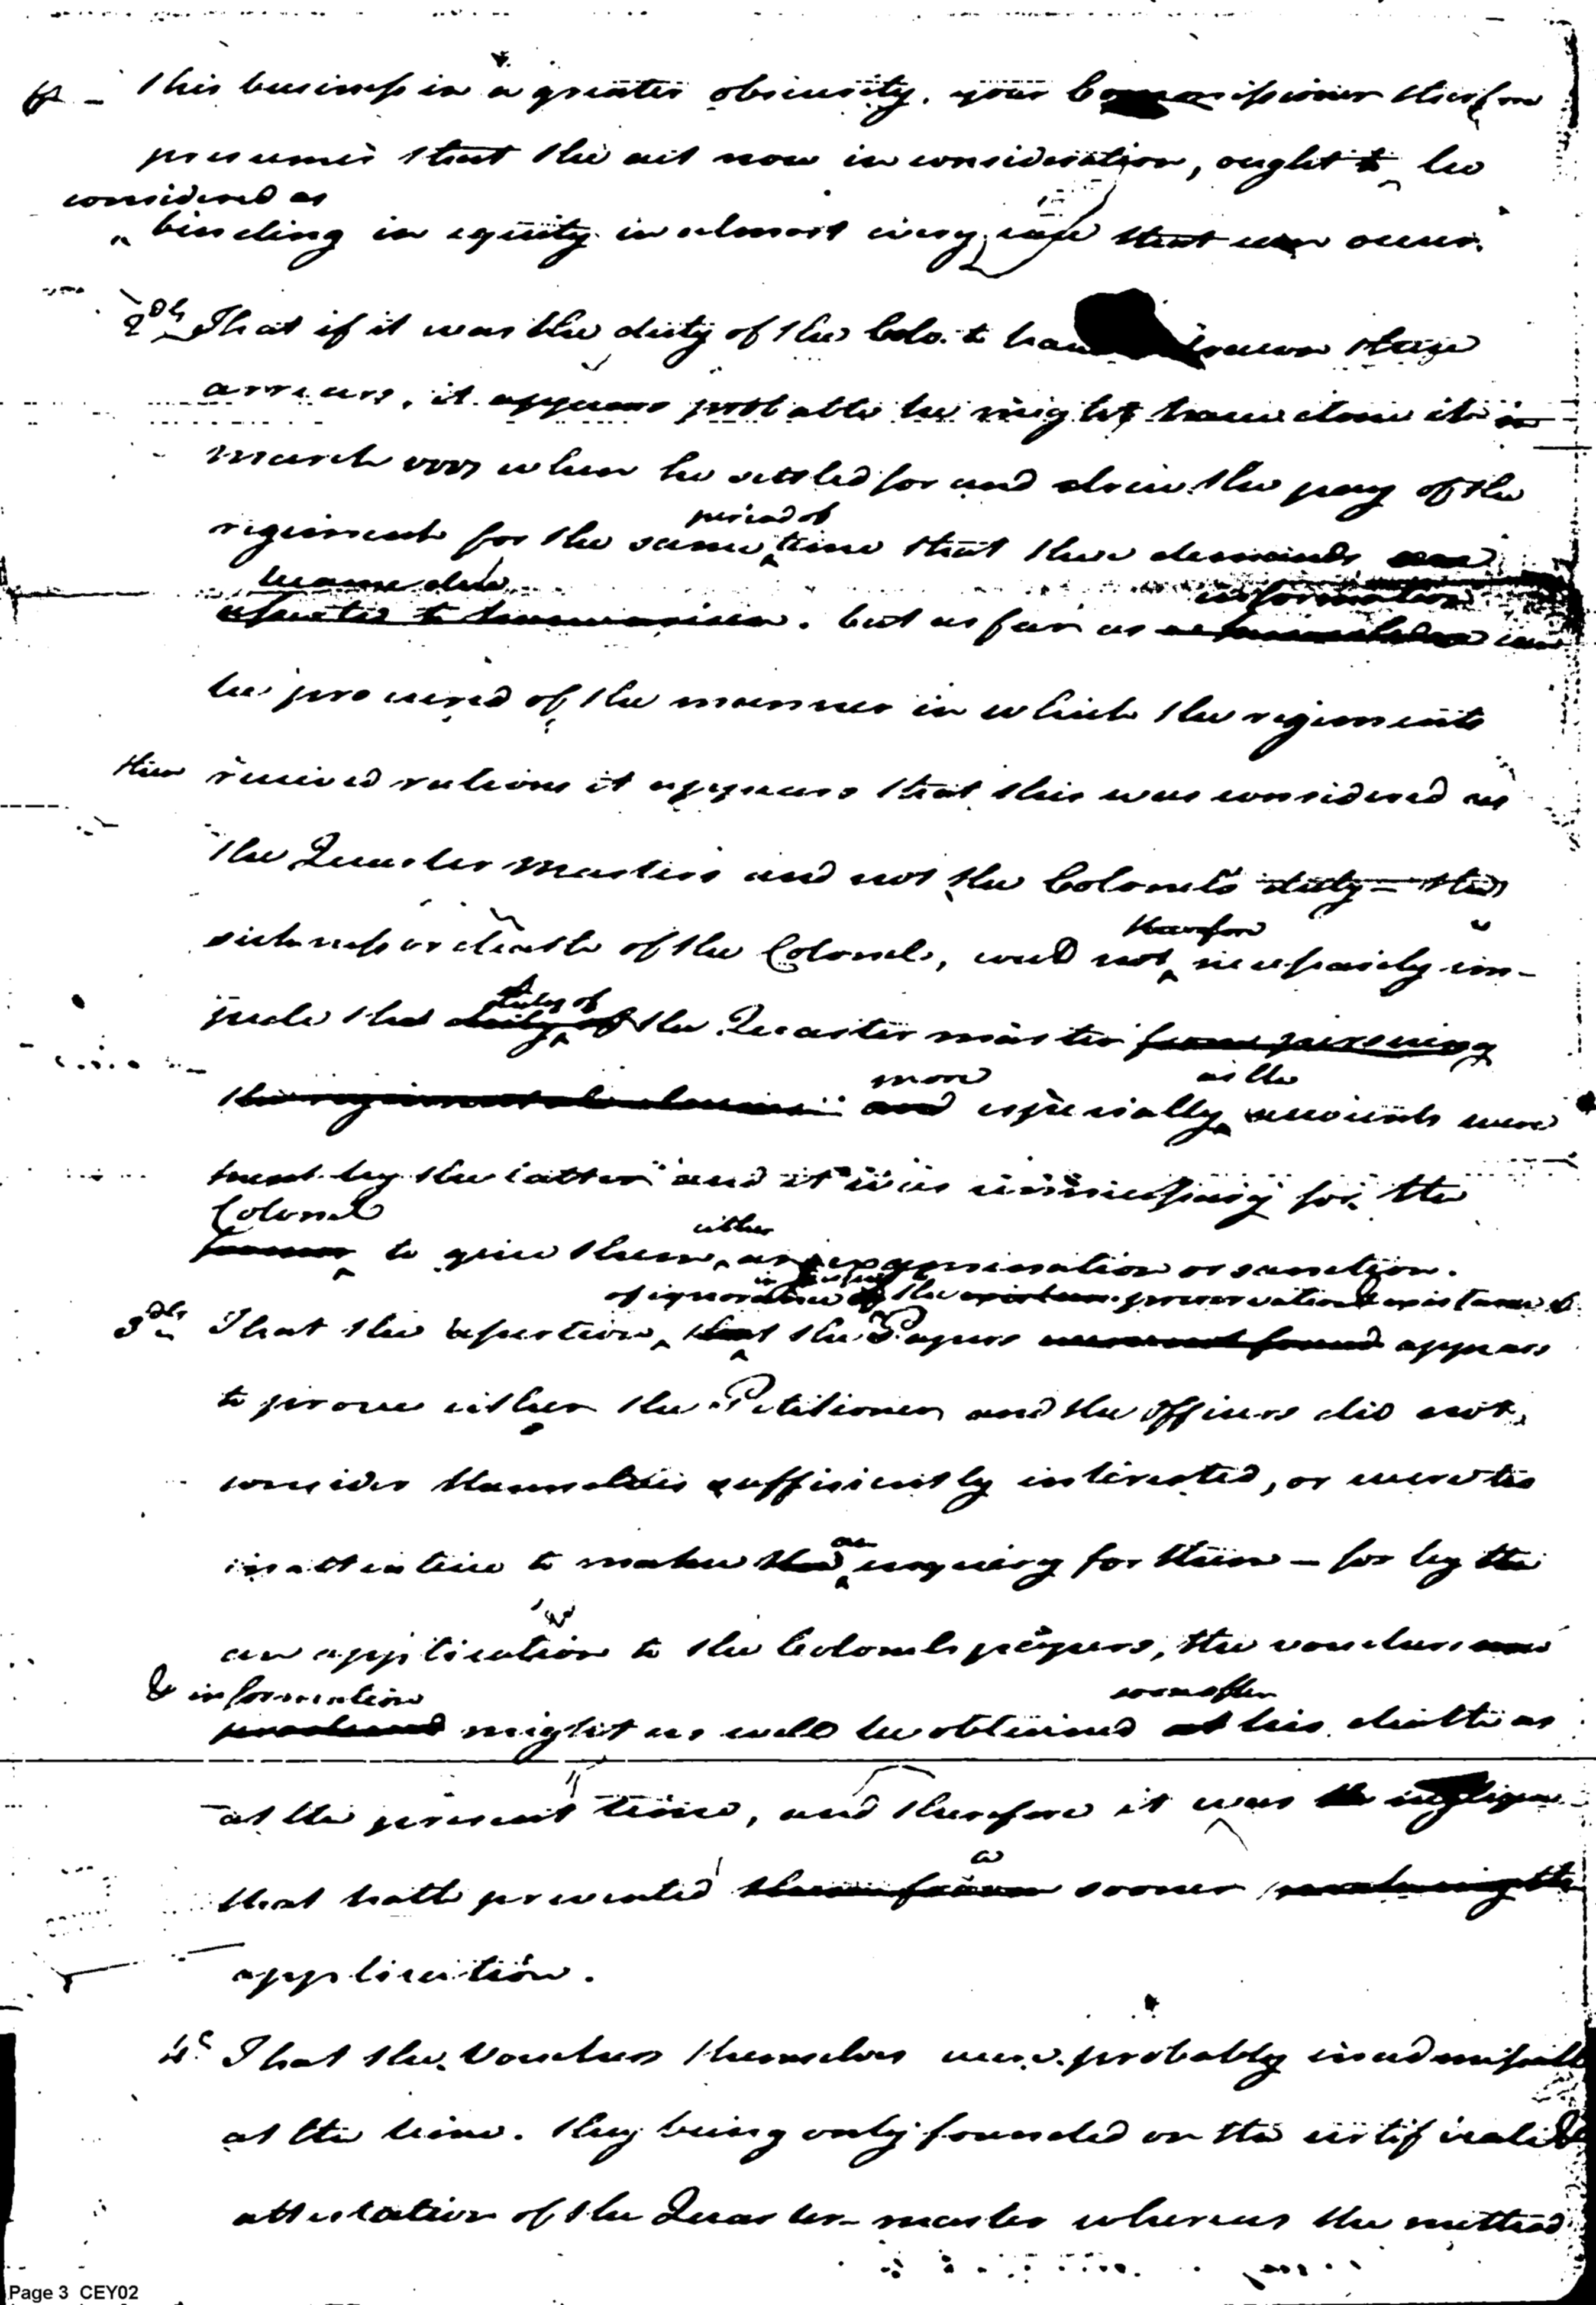 this business in a greater obscurity. your Commissioner therefore
presumes that the act now in consideration, ought to be
considered as
binding in equity in almost every case that can occur.
2dly That if it was the duty of the Colo. to have drawn these
arrears, it appears probable he might have done it in
march when he settled for and drew the pay of the
period of
regiment for the same time that these demands
became due information
. but as far as can
be procured of the manner in which the regiments
then received rations it appears that this was considered as
the Quarter Masters and not the Colonels duty – the
therefore
sickness or death of the Colonel, could not necessarily im-
duty of
pede the duty of the Quarter master from pursuing
more as the
the regimental claims and especially accounts were
kept by the latter and it was unnecessary for the
Colonel either
former to give them an examination or sanction.
of ignorance of the existence preservation & existence &
3dly That the assertion that the Papers were not found appears
to prove either the Petitioner and the officers did not
consider themselves sufficiently interested, or were too
an
inattentive to make the enquiry for them – for by the
an application to the Colonels papers, the vouchers
& information soon after
produced might as well be obtained at his death as
at the present time, and therefore it was the negligence
a
that hath prevented them from sooner making the
application.
4th That the Vouchers themselves were probably inadmissable
at the time. they being only founded on the certificate &
attestation of the Quarter-master whereas the method
Page 3 CEY02